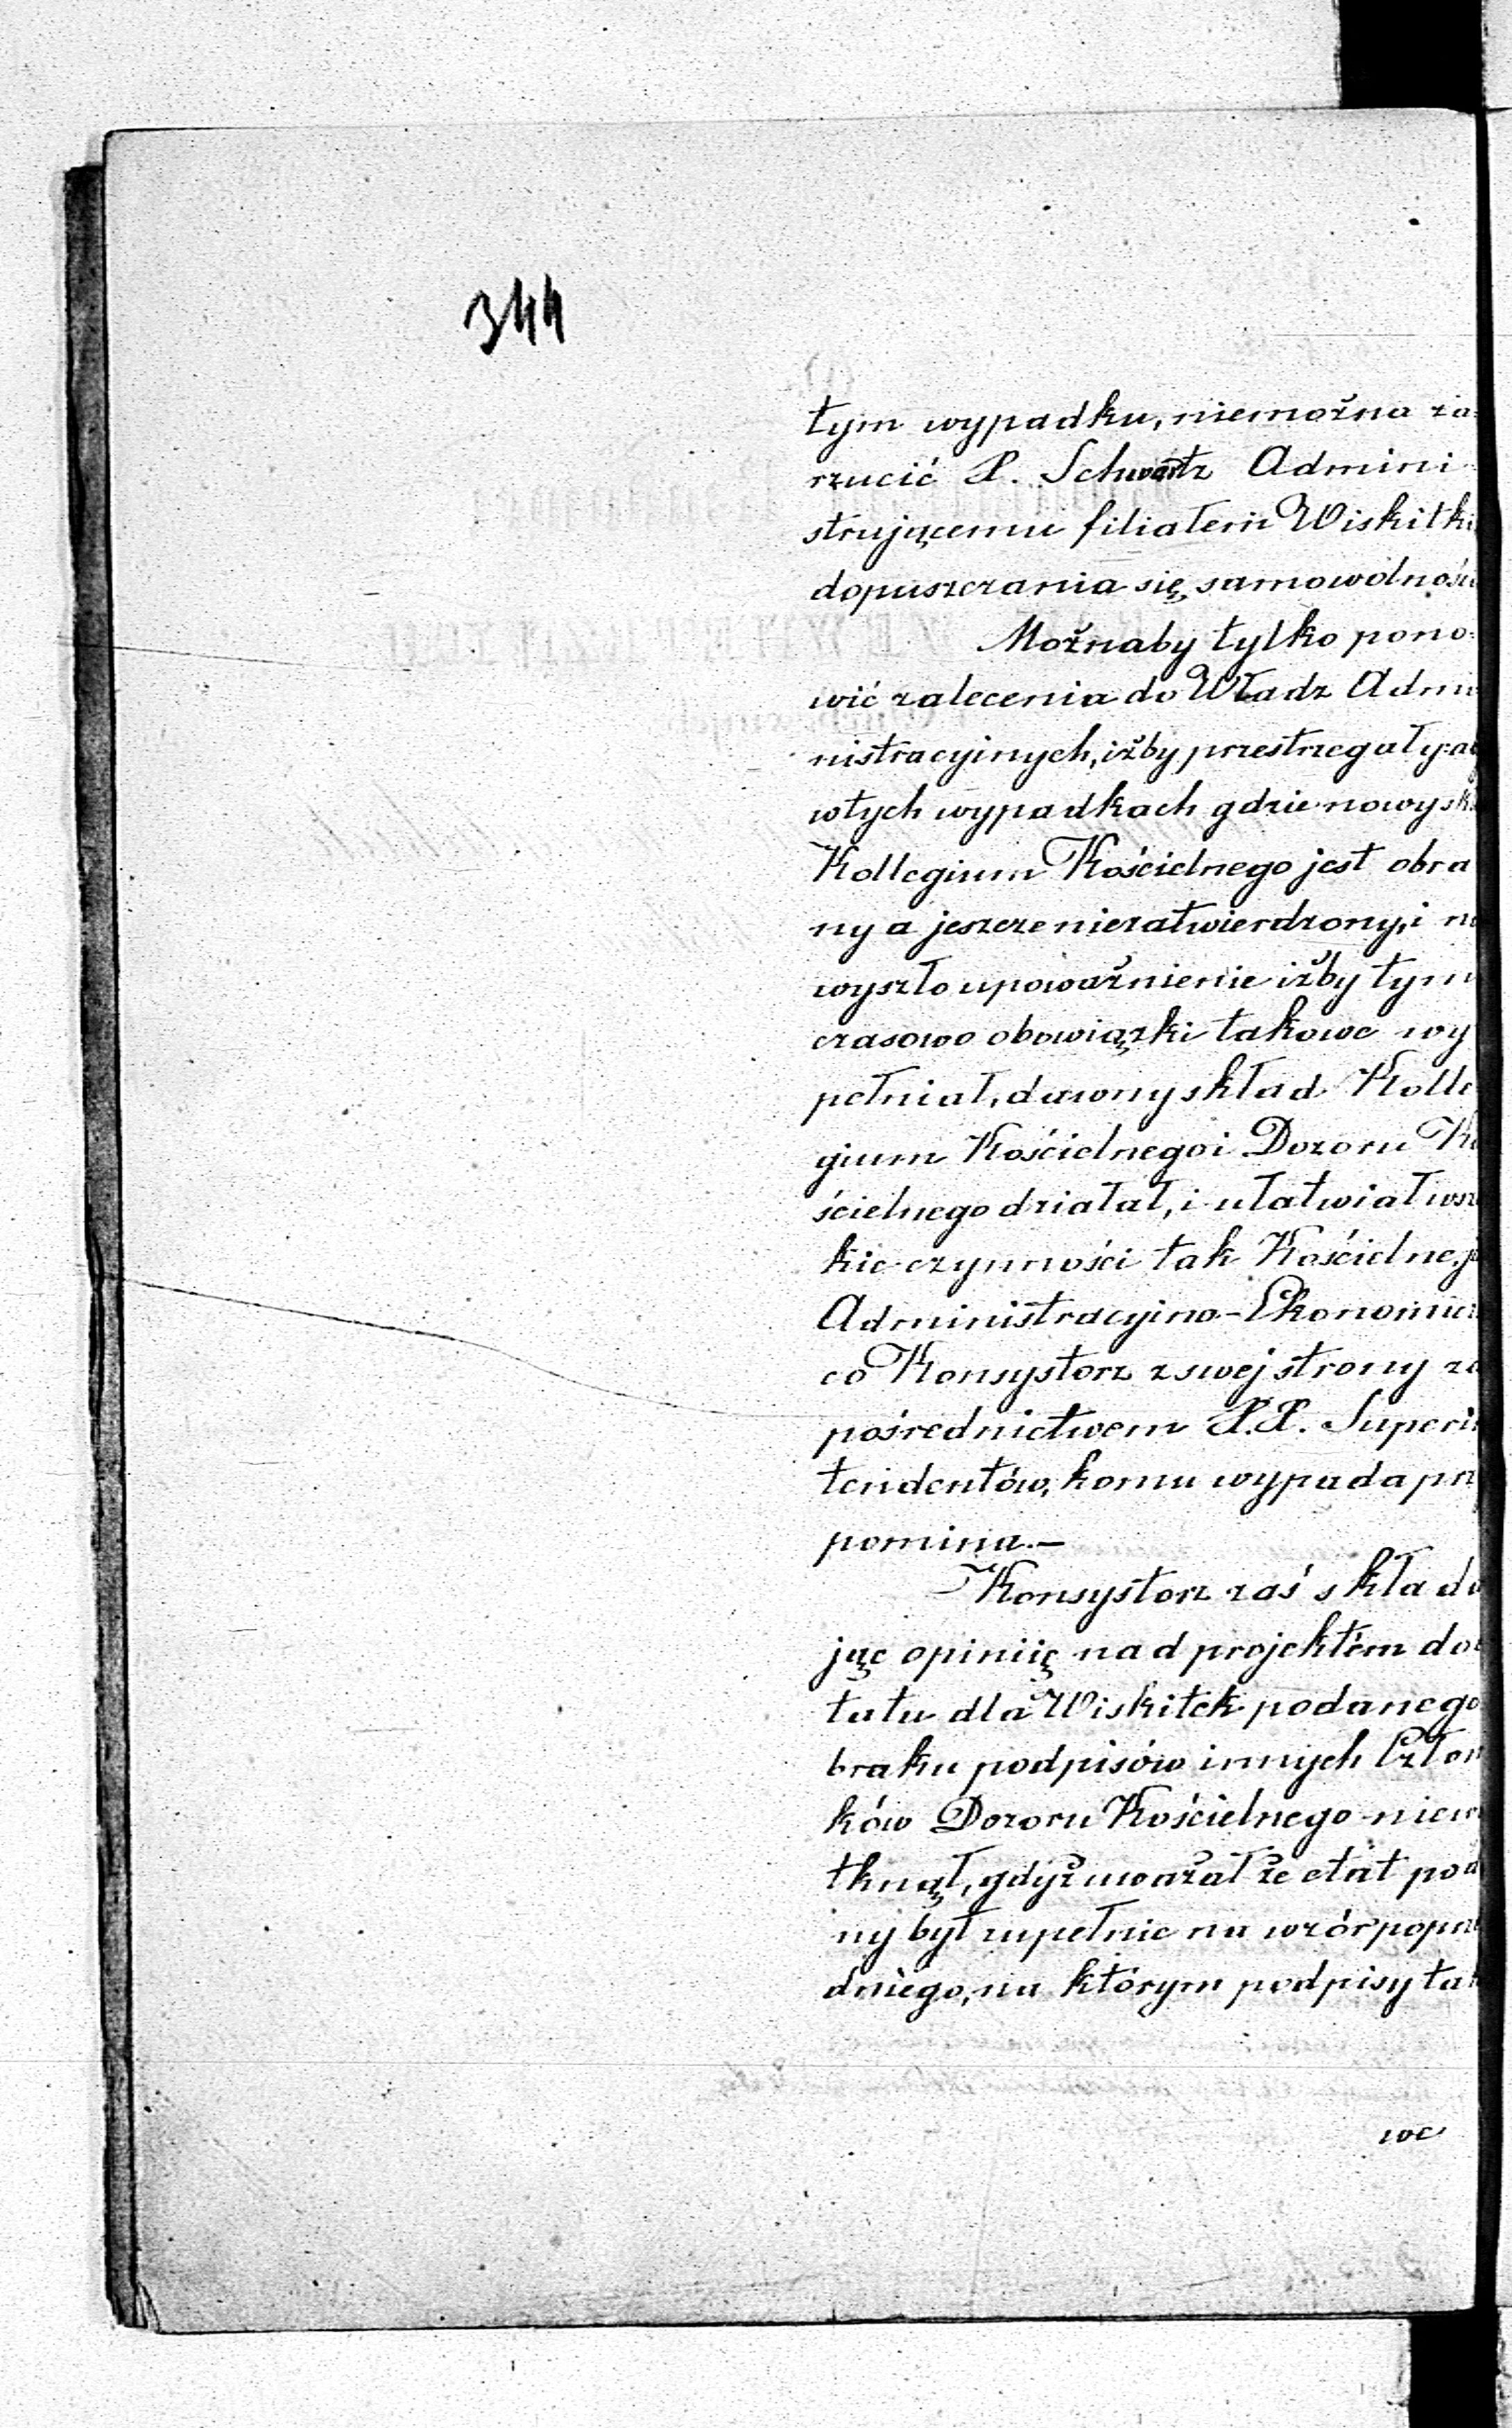 344
tym wypadku, niemożna za=
rzucić P. Schwartz Admini
strującemu filiałem Wiskitki
dopuszczania się samowolności
Możnaby tylko pono=
wić zalecenia do Władz Admi
nistracyjnych, iżby przestrzegały: a
wtych wypadkach gdzie nowy sk
Kollegium Kościelnego jest obra
ny a jeszcze niezatwierdzony, i n
wyszło upoważnienie iżby tym
czasowo obowiązki takowe wy
pełniał, dawny skład Kolle
gium Kościelnego i Dozoru K
ścielnego działał, i ułatwiał wsz
kie czynności tak Kościelne, j
Administracyjno-Ekonomicz
co Konsystorz z swej strony za
pośrednictwem P.P. Superin
tendentów, komu wypada prz
pomina.-
Konsystorz zaś składa
jąc opiniię nad projektem do
tatu dla Wiskitek podanego
braku podpisów innych Człon
ków Dozoru Kościelnego niew
tknął, gdyż uważał że etat pod
ny był zupełnie na wzór popra
dniego, na którym podpisy tak
we